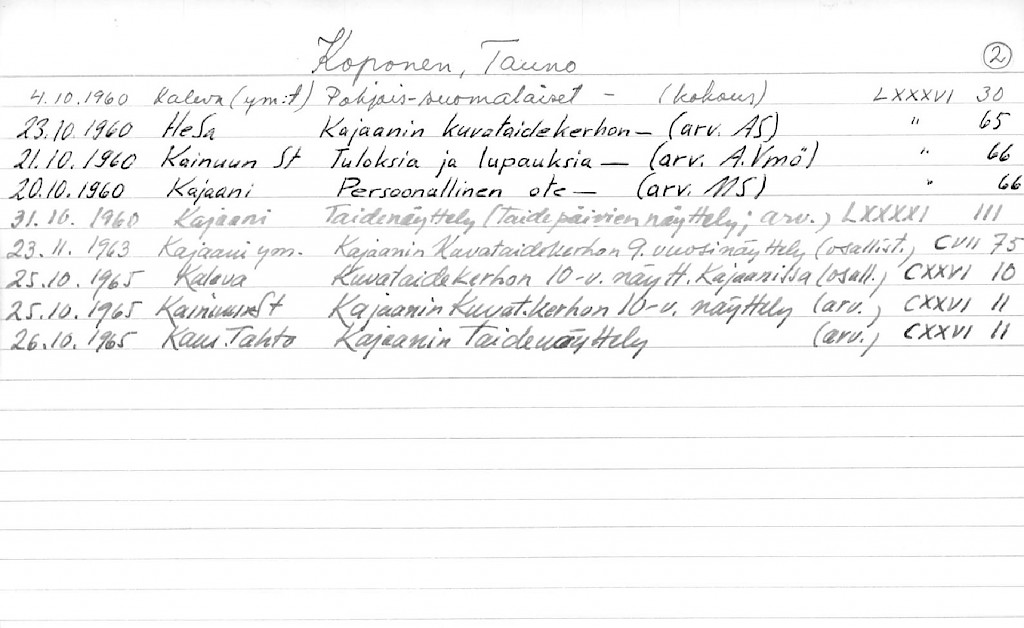 Koponen, Tauno 2
4.10.1960 Kaleva (ym:t) Pohjois-suomalaiset - (kokous) LXXXVI 30
23.10.1960 HeSa Kajaanin kuvataidekerhon - (arv. AS) " 65
21.10.1960 Kainuun St Tuloksia ja lupauksia - (arv. A.Vmö) " 66
20.10.1960 Kajaani Persoonallinen ote - (arv. MS) " 66
31.10.1960 Kajaani Taidenäyttely (Taidepäivien näyttely; arv.) LXXXXI 111
23.11.1963 Kajaani ym. Kajaanin Kuvataidekerhon 9. vuosinäyttely (osallist.) CVII 75
25.10.1965 Kaleva Kuvataidekerhon 10-v. näytt. Kajaanissa (osall.) CXXVI 10
25.10.1965 Kainuun St Kajaanin Kuvat.kerhon 10-v. näyttely (arv.) CXXVI 11
26.10.1965 Kans.Tahto Kajaanin Taidenäyttely (arv.) CXXVI 11